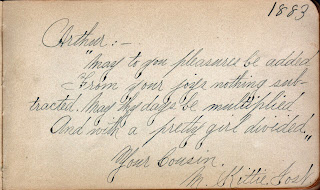 1883
Arthur:-.
"May to you pleasures be added
From your joys nothing sub-
tracted. May thy days be multiplied
And with a pretty girl divided."
Your Cousin.
M. Kittie